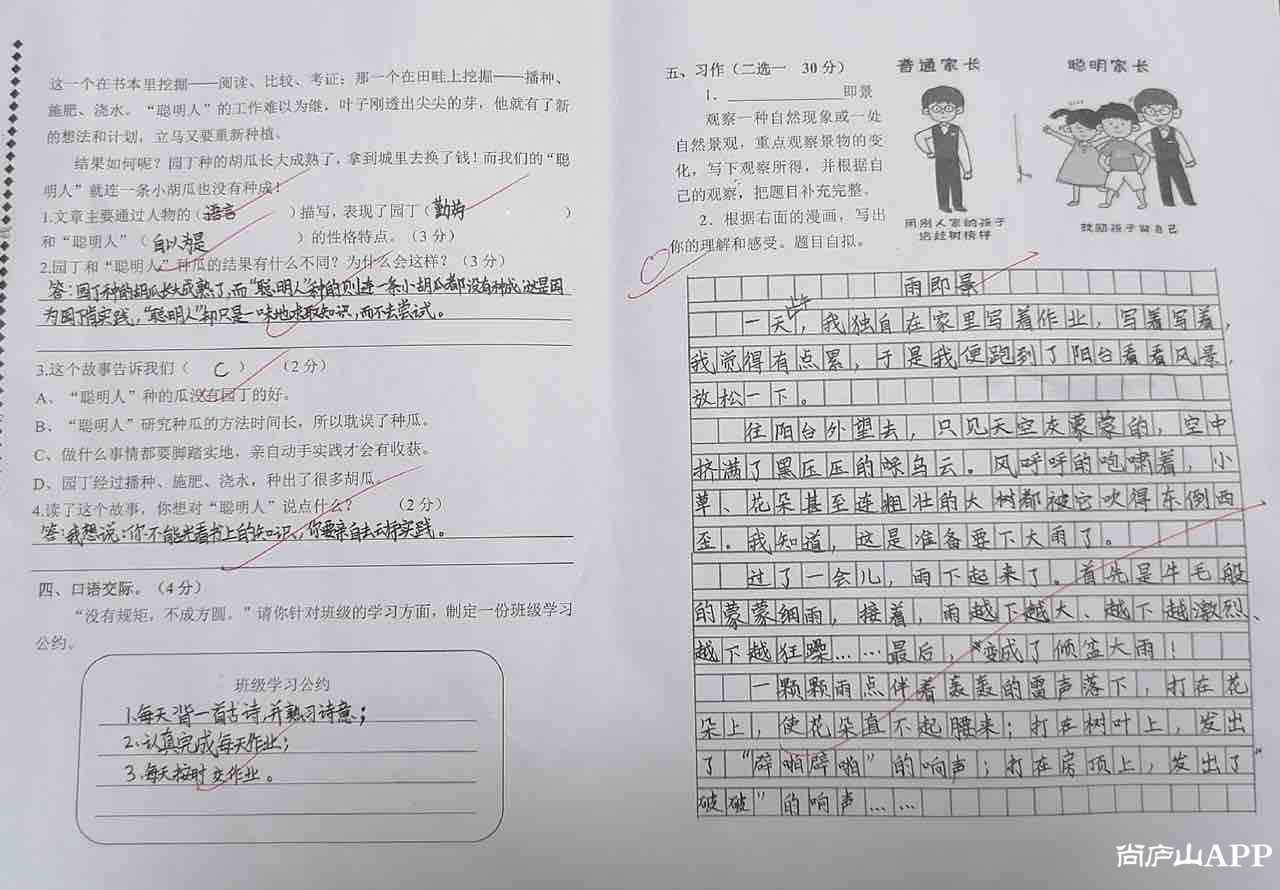 这一个在书本里挖掘——阅读、比较、考证；那一个在田畦上挖掘——播种、
施肥、浇水。“聪明人”的工作难以为继，叶子刚透出尖尖的芽，他就有了新
的想法和计划，立马又要重新种植。
结果如何呢？园丁种的胡瓜长大成熟了，拿到城里去换了钱！而我们的“聪
明人”就连一条小胡瓜也没有种成！
1.文章主要通过人物的（语言 ）描写，表现了园丁（勤劳 ）
和“聪明人”（自以为是 ）的性格特点。（3 分）
2.园丁和“聪明人”种瓜的结果有什么不同？为什么会这样？（3 分）
答：园丁种的胡瓜长大成熟了，而“聪明人”种的则连一条小胡瓜都没有种成，这是因
为园丁靠实践，“聪明人”却只是一味地求取知识，而不去尝试。
3.这个故事告诉我们（ C ） （2 分）
A、“聪明人”种的瓜没有园丁的好。
B、“聪明人”研究种瓜的方法时间长，所以耽误了种瓜。
C、做什么事情都要脚踏实地，亲自动手实践才会有收获。
D、园丁经过播种、施肥、浇水，种出了很多胡瓜。
4.读了这个故事，你想对“聪明人”说点什么？ （2 分）
答：我想说：你不能光看书上的知识，你要亲自去实践。
四、口语交际。（4 分）
“没有规矩，不成方圆。”请你针对班级的学习方面，制定一份班级学习
公约。
班级学习公约
1.每天背一首古诗，并熟习诗意；
2.认真完成每天作业；
3.每天按时交作业。
五、习作（二选一 30 分）
1．______________即景
观察一种自然现象或一处
自然景观，重点观察景物的变
化，写下观察所得，并根据自
己的观察，把题目补充完整。
2．根据右面的漫画，写出
你的理解和感受。题目自拟。
普通家长
聪明家长
用别人家的孩子
给娃树榜样
鼓励孩子做自己
雨即景
一天，我独自在家里写着作业，写着写着，
我觉得有点累，于是我便跑到了阳台看看风景，
放松一下。
往阳台外望去，只见天空灰蒙蒙的，空中
挤满了黑压压的乌云。风呼呼的咆啸着，小
草、花朵甚至连粗壮的大树都被它吹得东倒西
歪。我知道，这是准备要下大雨了。
过了一会儿，雨下起来了。首先是牛毛般
的蒙蒙细雨，接着，雨越下越大、越下越激烈、
越下越狂躁……最后，变成了倾盆大雨！
一颗颗雨点伴着轰轰的雷声落下，打在花
朵上，使花朵直不起腰来；打在树叶上，发出
了“噼啪噼啪”的响声；打在房顶上，发出了“
破破”的响声……
尚庐山APP